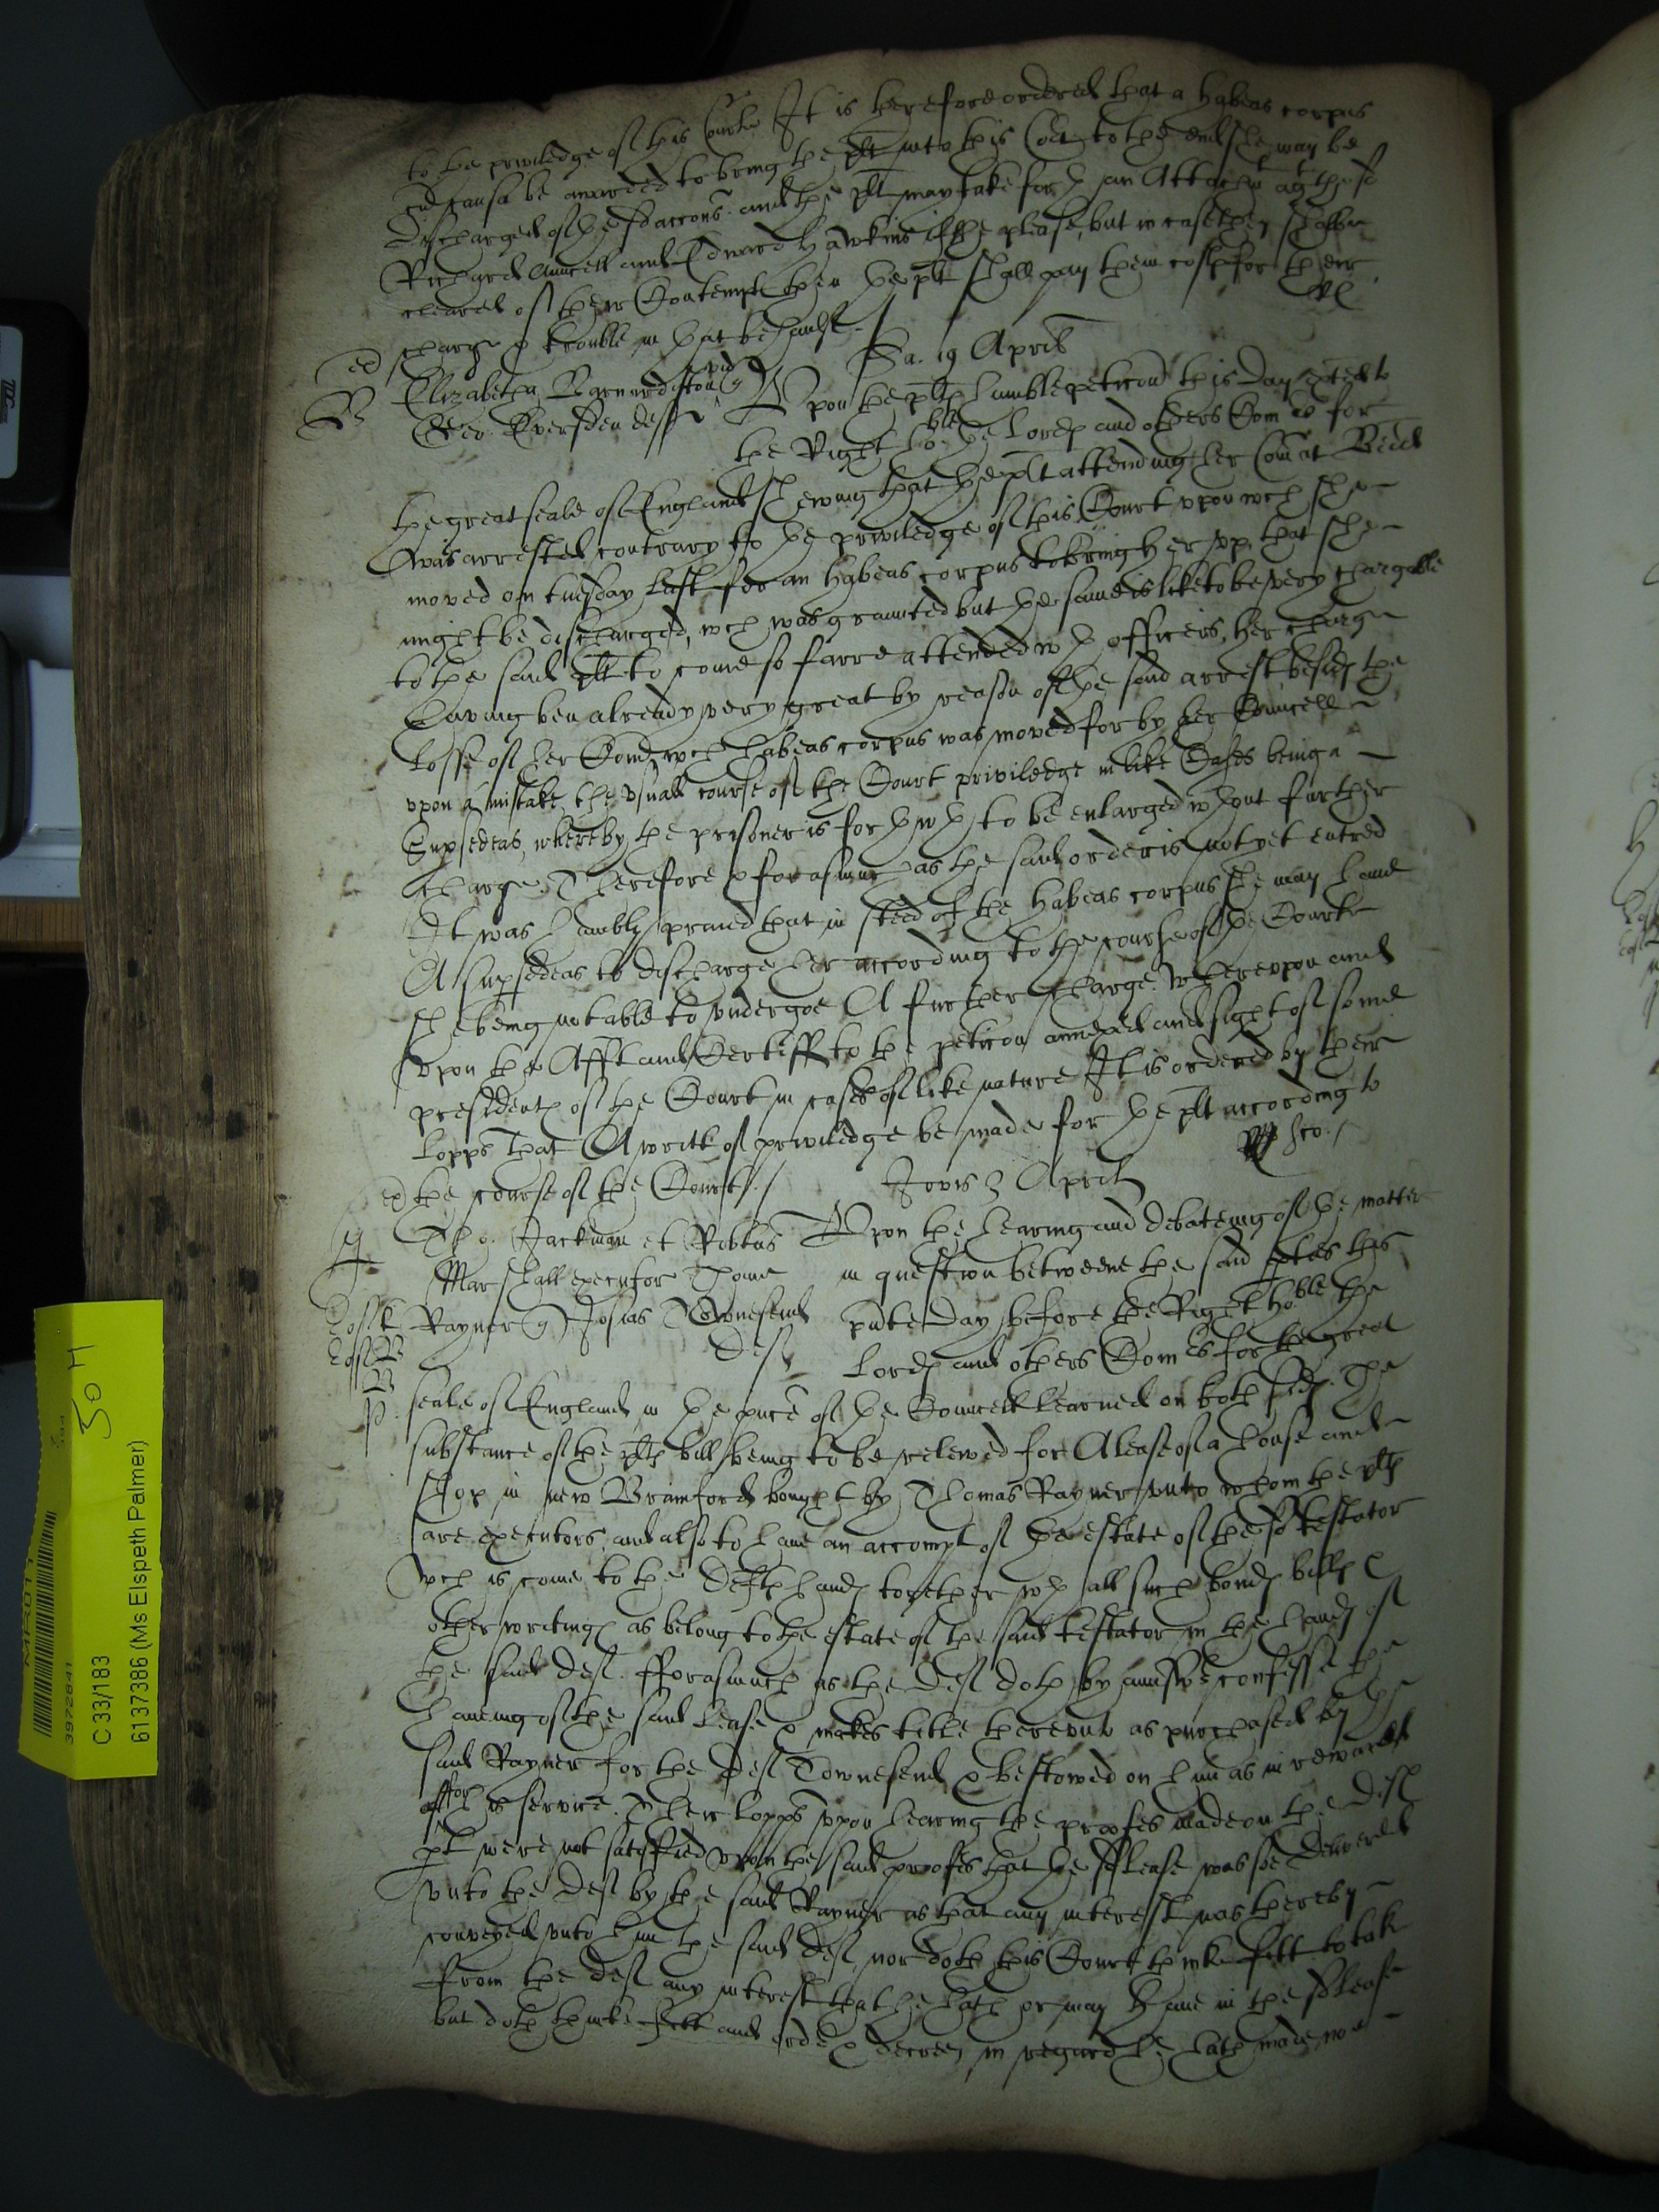 to the priviledge of this Courte It is therefore ordered that a habeas corpus
cu causa be awarded to bring the plt into this Cort to the end she may be
discharged of the sd accons. and the plt may take forth an Attachmt agt the sd
Richard Auncell and Edward Hawkins if she please, but in case they shalbe
cleared of their Contempt then the plt shall pay them costs for their
charge & trouble in that behaulf
Sa. 19 April
ed
B
Elizabetha Barnardiston vid
Geo. Eversden def
Upon the plts humble peticon this day preferred to
the Right hoble the Lords and others Comrs for
the great seale of England shewing that the plt attending her Com at
was arrested contrary to the priviledge of this Court upon wch she
moved on tuesday last for an habeas corpus to bring her up, that she
might be discharged, wch was graunted but the same is like to be very chargable
to the said plt to come so farre attended wth officers, her charge
having ben already very great by reason of the said arrest besids the
losse of her Com, wch habeas corpus was moved for by her Councell
upon a mistake, the usuall course of the Court priviledge in like Cases being a
Supsedeas, whereby the prisoner is forthwth to be enlarged wthout further
charge. Therefore & forasmuch as the said order is not yet entred
It was humbly praied that in steed of the habeas corpus she may have
A supsedeas to discharge her according to the course of the Court
she being not able to undergoe A further charge. Whereupon and
upon the Afft and Certiff to the peticon annexed and sight of some
presidents of the Court in cases of like nature It is ordered by their
Lopps that A writt of priviledge be made for the plt according to
ed the course of the Court /
Jovis 3 April
Tho. Jackman et Robtus
Marshall executor Thome
Rayner Josias Townesend
def
Upon the hearing and debateing of the matter
in question betweene the said pties this
pnte day before the Right hoble the
Lords and others Comrs for the great
seale of England in the pnce of the Councell learned on both sids The
substance of the plts bill being to be releived for A lease of a house and
shop in new Brainford bought by Thomas Rayner unto whom the plts
are executors, and also to have an accompt of the estate of the sd testator
wch is come to the defts hands together wth all such bonds bills &
other writings as belong to the estate of the said testator in the hands of
the said def. fforasmuch as the def doth by answere confesse the
haveing of the said lease & makes title thereunto as purchased by the
said Rayner for the def Townesend & bestowed on him as in reward
for his service. Their Lopps upon hearing the proofes made on the def
pt were not satisfied upon the said proofes that the sd lease was soe delivered
unto the def by the said Rayner as that any interest was thereby
conveyed unto him the said def nor doth this Court thinke fitt to take
from the def any interest that he hath or may have in the sd lease
but doth thinke fitt and order & decree, in regard he hath made noe
MR011
3972841
C 33/183
6137386 (Ms Elspeth Palmer)